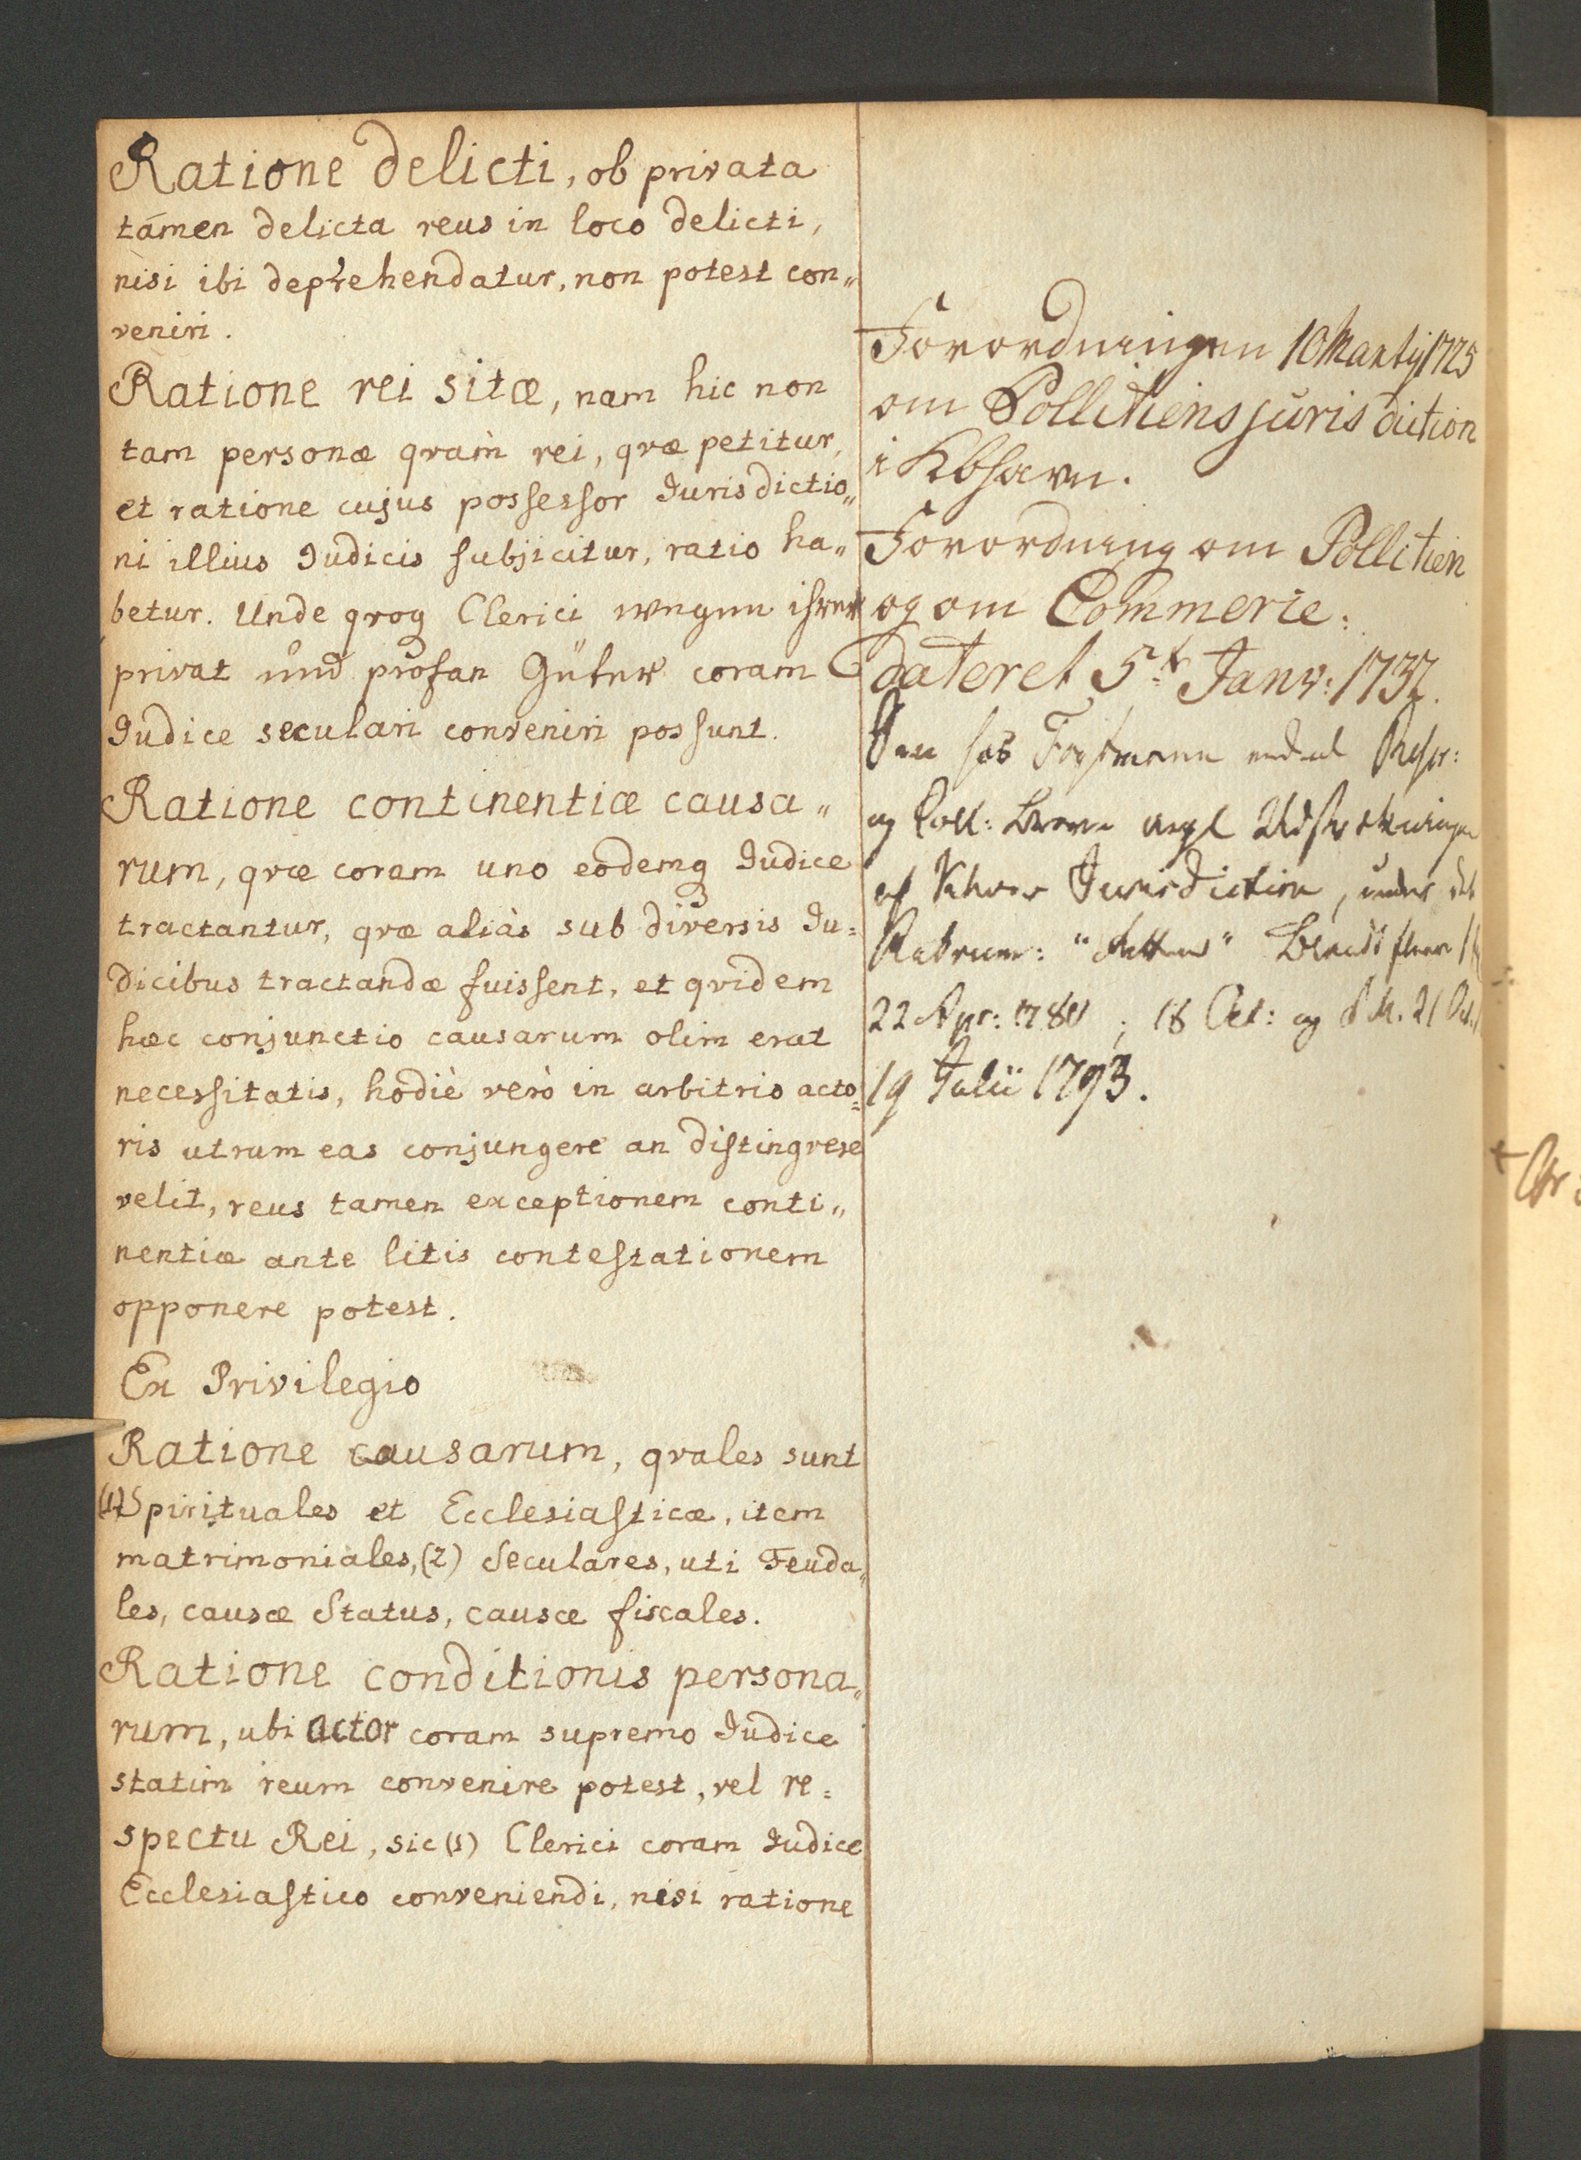 Ratione delicti, ob privata
tamen delicta reus in loco delicti,
nisi ibi deprehendatur, non potest con„
veniri.
Ratione rei sitæ, nam hic non
tam personæ qvam rei, qvæ petitur,
et ratione cujus possessor Jurisdictio„
ni illius Judicis subjicitur, ratio ha„
betur. Unde qvoq Clerici wegen ihrer
privat und profan Güter coram
Judice seculari conveniri possunt.
Ratione continentiæ causa„
rum, qvæ coram uno eodemq Judice
tractantur, qvæ aliàs sub diversis Ju=
dicibus tractandæ fuissent, et qvidem
hæc conjunctio causarum olim erat
necessitatis, hodiè verò in arbitrio acto=
ris utrum eas conjungere an distingvere
velit, reus tamen exceptionem conti„
nentiæ ante litis contestationem
opponere potest.
Ex Privilegio
Ratione causarum, qvales sunt
(1) Spirituales et Ecclesiasticæ, item
matrimoniales, (2) Seculares, uti Feuda„
les, causæ Status, causæ fiscales.
Ratione conditionis persona„
rum, ubi actor coram supremo Judice
statim reum convenire potest, vel re=
spectu Rei, sic (1) Clerici coram Judice
Ecclesiastico conveniendi, nisi ratione
Forordningen 10 Martij 1725
om Pollitiens jurisdiction
i Kbhavn.
Forordning om Pollitien
og om Commercie.
dateret 5t Janv: 1732.
og Coll:
af Jurisdiction, under
Rubrum:
22 Apr: ; 18 Oct: og 21
19 Julii 1793.